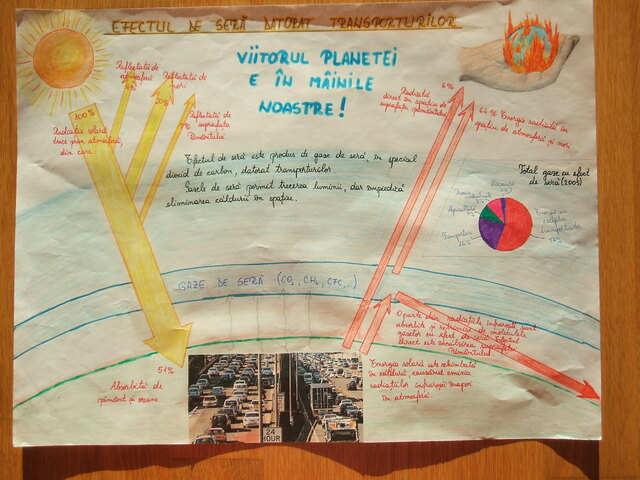 EFECTUL DE SERĂ DATORAT TRANSPORTURILOR
VIITORUL PLANETEI
E ÎN MÂINILE
NOASTRE!
100%
Radiație solară
trece prin atmosferă,
din care:
Reflectată de
atmosferă
6%
Reflectată de
nori
20%
Reflectată
de suprafața
Pământului
Efectul de seră este produs de gaze de seră, în special
dioxid de carbon, datorat transporturilor.
Gazele de seră permit trecerea luminii, dar împiedică
eliminarea căldurii în spațiu.
6%
Radiată
direct în spațiu de
suprafața pământului
64% Energie radiată în
spațiu de atmosferă și nori
Total gaze cu efect
de seră (2005)
Deșeuri
Agricultură
Transporturi
Energie cu
excepția
transporturilor
GAZE DE SERĂ (CO₂, CH₄, CFC,...)
O parte din radiațiile infraroșii sunt
absorbite și retrimise de moleculele
gazelor cu efect de seră. Efectul
direct este încălzirea suprafeței
Pământului.
51%
Absorbită de
pământ și oceane
24
HOUR
Energia solară este schimbată
în căldură, cauzând emisia
radiațiilor infraroșii înapoi
în atmosferă.